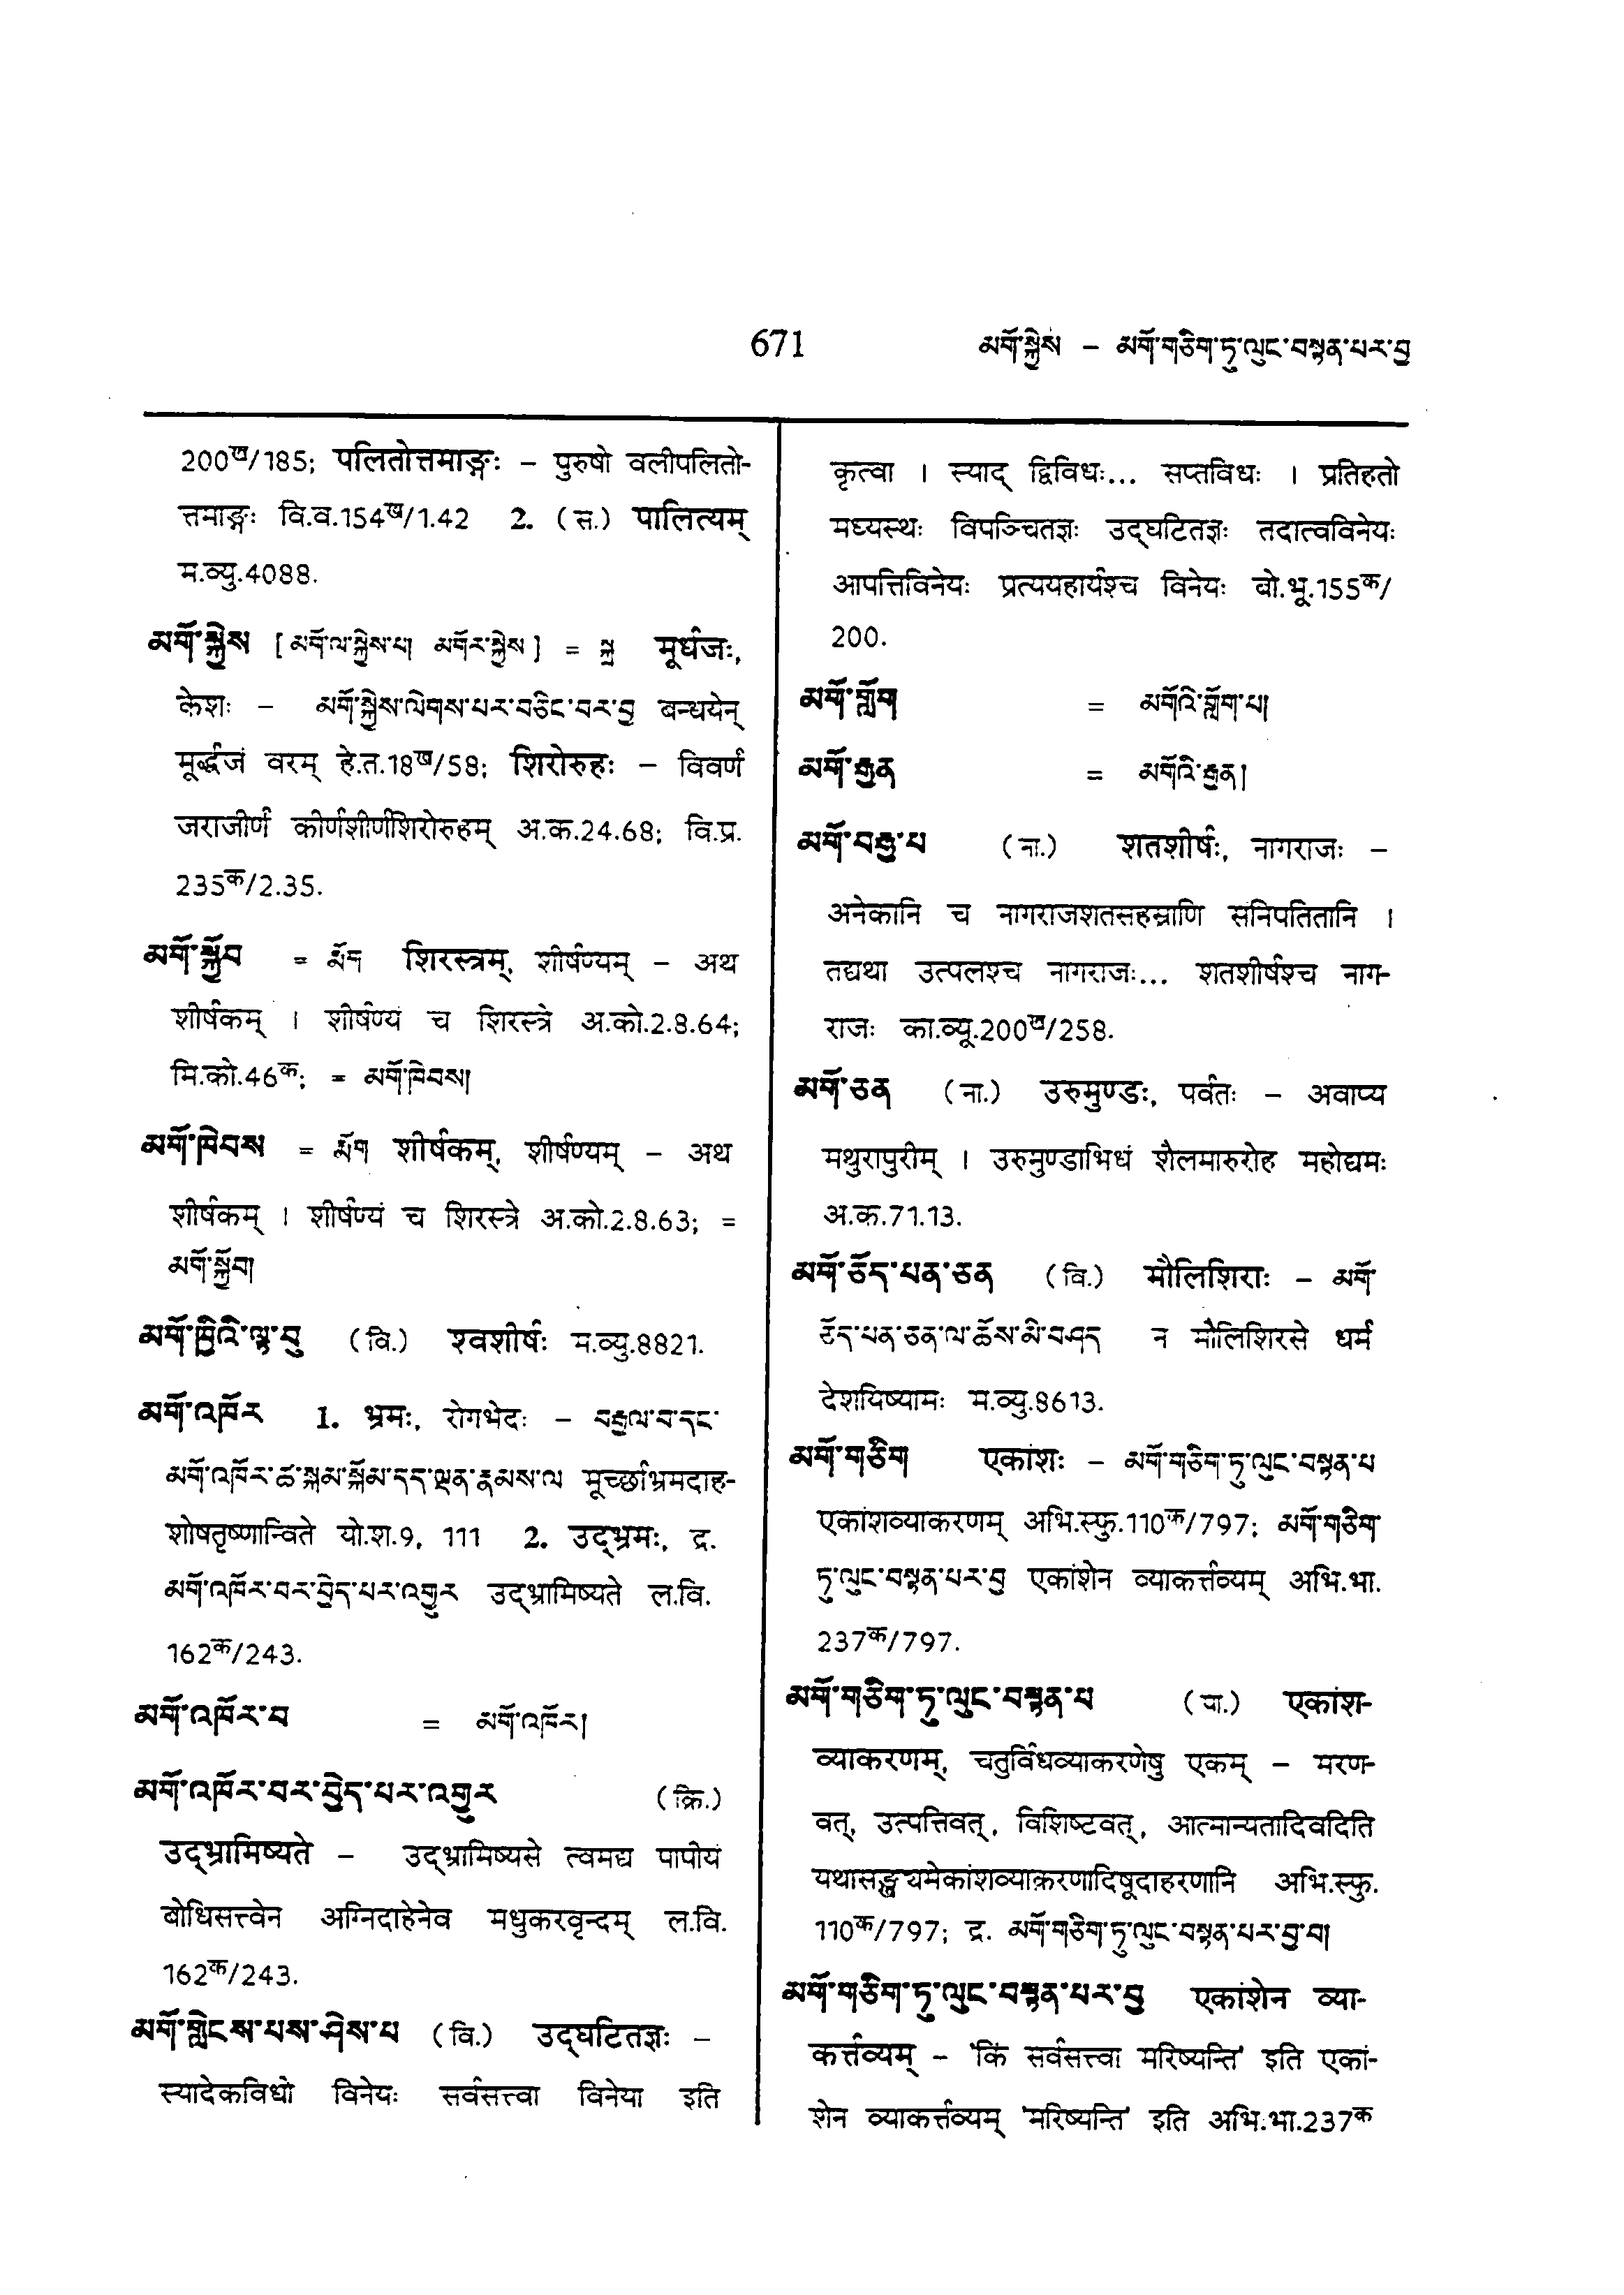 671
མགོ་སྐྱེས – མགོ་གཅིག་ཏུ་ལུང་བསྟན་པར་བྱ
200ख/185; पलितोत्तमाङ्गः – पुरुषो वलीपलितो-
त्तमाङ्गः वि.व.154ख/1.42 2. (सं.) पालित्यम्
म.व्यु.4088.
མགོ་སྐྱེས [མགོ་ལ་སྐྱེས་པ། མགོར་སྐྱེས] = སྐྲ मूर्धजः,
केशः – མགོ་སྐྱེས་ལེགས་པར་བཅིང་བར་བྱ बन्धयेन्
मूर्द्धजं वरम् हे.त.18ख/58; शिरोरुहः – विवर्णं
जराजीर्णं कीर्णशीर्णशिरोरुहम् अ.क.24.68; वि.प्र.
235क/2.35.
མགོ་སྐྱོབ = རྨོག शिरस्त्रम्, शीर्षण्यम् – अथ
शीर्षकम् । शीर्षण्यं च शिरस्त्रे अ.को.2.8.64;
मि.को.46क; = མགོ་ཁེབས།
མགོ་ཁེབས = རྨོག शीर्षकम्, शीर्षण्यम् – अथ
शीर्षकम् । शीर्षण्यं च शिरस्त्रे अ.को.2.8.63; =
མགོ་སྐྱོབ།
མགོ་ཁྱིའི་ལྟ་བུ (वि.) श्वशीर्षः म.व्यु.8821.
མགོ་འཁོར 1. भ्रमः, रोगभेदः – བརྒྱལ་བ་དང་
མགོ་འཁོར་ཚ་སྐམ་སྐོམ་དད་ལྡན་རྣམས་ལ मूर्च्छाभ्रमदाह-
शोषतृष्णान्विते यो.श.9, 111 2. उद्भ्रमः, द्र.
མགོ་འཁོར་བར་བྱེད་པར་འགྱུར उद्भ्रामिष्यते ल.वि.
162क/243.
མགོ་འཁོར་བ = མགོ་འཁོར།
མགོ་འཁོར་བར་བྱེད་པར་འགྱུར (क्रि.)
उद्भ्रामिष्यते – उद्भ्रामिष्यसे त्वमद्य पापीयं
बोधिसत्त्वेन अग्निदाहेनेव मधुकरवृन्दम् ल.वि.
162क/243.
མགོ་གླེངས་པས་ཤེས་པ (वि.) उद्घटितज्ञः –
स्यादेकविधो विनेयः सर्वसत्त्वा विनेया इति
कृत्वा । स्याद् द्विविधः... सप्तविधः । प्रतिहतो
मध्यस्थः विपञ्चितज्ञः उद्घटितज्ञः तदात्वविनेयः
आपत्तिविनेयः प्रत्ययहार्यश्च विनेयः बो.भू.155क/
200.
མགོ་གློག = མགོའི་གློག་པ།
མགོ་རྒྱན = མགོའི་རྒྱན།
མགོ་བརྒྱ་པ (ना.) शतशीर्षः, नागराजः –
अनेकानि च नागराजशतसहस्राणि संनिपतितानि ।
तद्यथा उत्पलश्च नागराजः... शतशीर्षश्च नाग-
राजः का.व्यू.200ख/258.
མགོ་ཅན (ना.) उरुमुण्डः, पर्वतः – अवाप्य
मथुरापुरीम् । उरुमुण्डाभिधं शैलमारुरोह महोद्यमः
अ.क.71.13.
མགོ་ཅོད་པན་ཅན (वि.) मौलिशिराः – མགོ་
ཅོད་པན་ཅན་ལ་ཆོས་མི་བཤད न मौलिशिरसे धर्मं
देशयिष्यामः म.व्यु.8613.
མགོ་གཅིག एकांशः – མགོ་གཅིག་ཏུ་ལུང་བསྟན་པ
एकांशव्याकरणम् अभि.स्फु.110क/797; མགོ་གཅིག་
ཏུ་ལུང་བསྟན་པར་བྱ एकांशेन व्याकर्त्तव्यम् अभि.भा.
237क/797.
མགོ་གཅིག་ཏུ་ལུང་བསྟན་པ (पा.) एकांश-
व्याकरणम्, चतुर्विधव्याकरणेषु एकम् – मरण-
वत्, उत्पत्तिवत्, विशिष्टवत्, आत्मान्यतादिवदिति
यथासङ्ख्यमेकांशव्याकरणादिषूदाहरणानि अभि.स्फु.
110क/797; द्र. མགོ་གཅིག་ཏུ་ལུང་བསྟན་པར་བྱ་བ།
མགོ་གཅིག་ཏུ་ལུང་བསྟན་པར་བྱ एकांशेन व्या-
कर्त्तव्यम् – 'किं सर्वसत्त्वा मरिष्यन्ति' इति एकां-
शेन व्याकर्त्तव्यम् 'मरिष्यन्ति' इति अभि.भा.237क